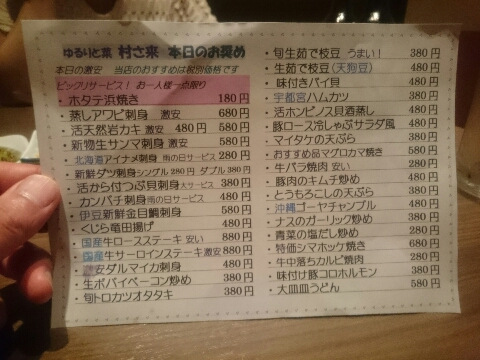 ゆるりと菜 村さ来 本日のお奨め
本日の激安 当店のおすすめは税別価格です
ビックリサービス! お一人様一点限り
・ホタテ浜焼き 180円
・蒸しアワビ刺身 激安 680円
・活天然岩カキ 激安 480円 580円
・新物生サンマ刺身 激安 580円
・北海道アイナメ刺身 雨の日サービス 280円
・新鮮ダツ刺身シングル280円 ダブル380円
・活から付つぶ貝刺身大サービス 380円
・カンパチ刺身雨の日サービス 480円
・伊豆新鮮金目鯛刺身 580円
・くじら竜田揚げ 480円
・国産牛ロースステーキ 安い 880円
・国産牛サーロインステーキ激安 880円
・激安ダルマイカ刺身 480円
・生ポパイベーコン炒め 380円
・旬トロカツオタタキ 380円
・旬生茹で枝豆 うまい! 380円
・生茹で枝豆(天狗豆) 480円
・味付きバイ貝 380円
・宇都宮ハムカツ 380円
・活ホンビノス貝酒蒸し 480円
・豚ロース冷しゃぶサラダ風 480円
・マイタケの天ぷら 380円
・おすすめ品マグロカマ焼き 580円
・牛バラ焼肉 安い 380円
・豚肉のキムチ炒め 480円
・とうもろこしの天ぷら 380円
・沖縄ゴーヤチャンプル 480円
・ナスのガーリック炒め 380円
・青菜の塩だし炒め 280円
・特価シマホッケ焼き 680円
・牛中落ちカルビ焼肉 580円
・味付け豚コロホルモン 380円
・大皿皿うどん 580円